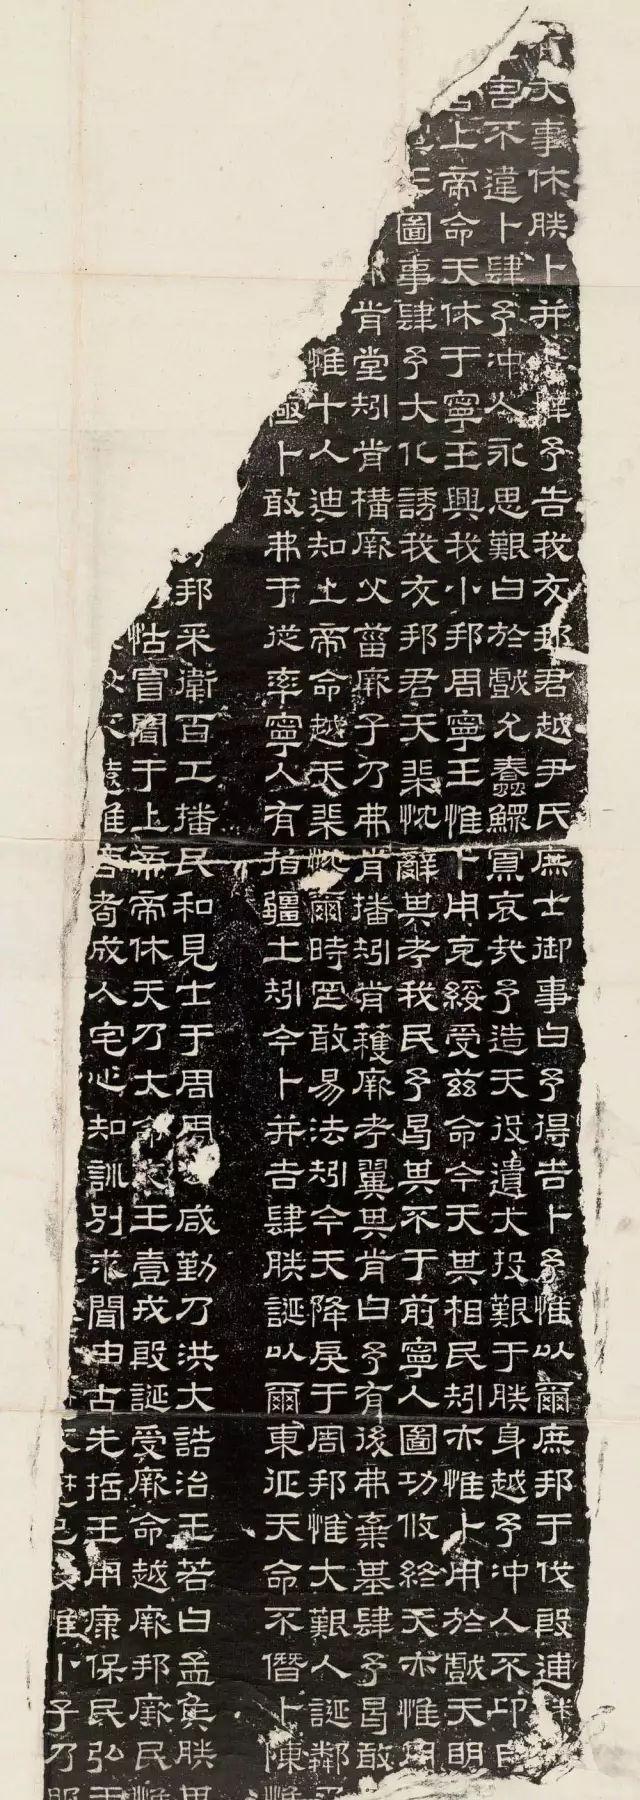 大事休朕卜并予告我友邦君越尹氏庶士御事曰予得吉卜予惟以爾庶邦于伐殷逋
害不違卜肆予沖人永思艱曰於戲允蠢鰥寡哀哉予造天役遺大投艱于朕身越予沖人不卬自
上帝命天休于寧王興我小邦周寧王惟卜用克綏受茲命今天其相民矧亦惟卜用於戲天明
王圖事肆予大化誘我友邦君天棐忱辭其考我民予曷其不于前寧人圖功攸終天亦惟用
肯堂矧肯構厥父菑厥子乃弗肯播矧肯穫厥考翼其肯曰予有後弗棄基肆予曷敢
惟十人迪知上帝命越天棐忱爾時罔敢易法矧今天降戾于周邦惟大艱人誕鄰
極卜敢弗于從率寧人有指疆土矧今卜并吉肆朕誕以爾東征天命不僭卜陳惟
邦采衛百工播民和見士于周周咸勤乃洪大誥治王若曰孟侯朕
怙冒聞于上帝帝休天乃大命王壹戎殷誕受厥命越厥邦厥民惟
遠惟耇成人宅心知訓別求聞由古先哲王用康保民弘于
惟小子乃服